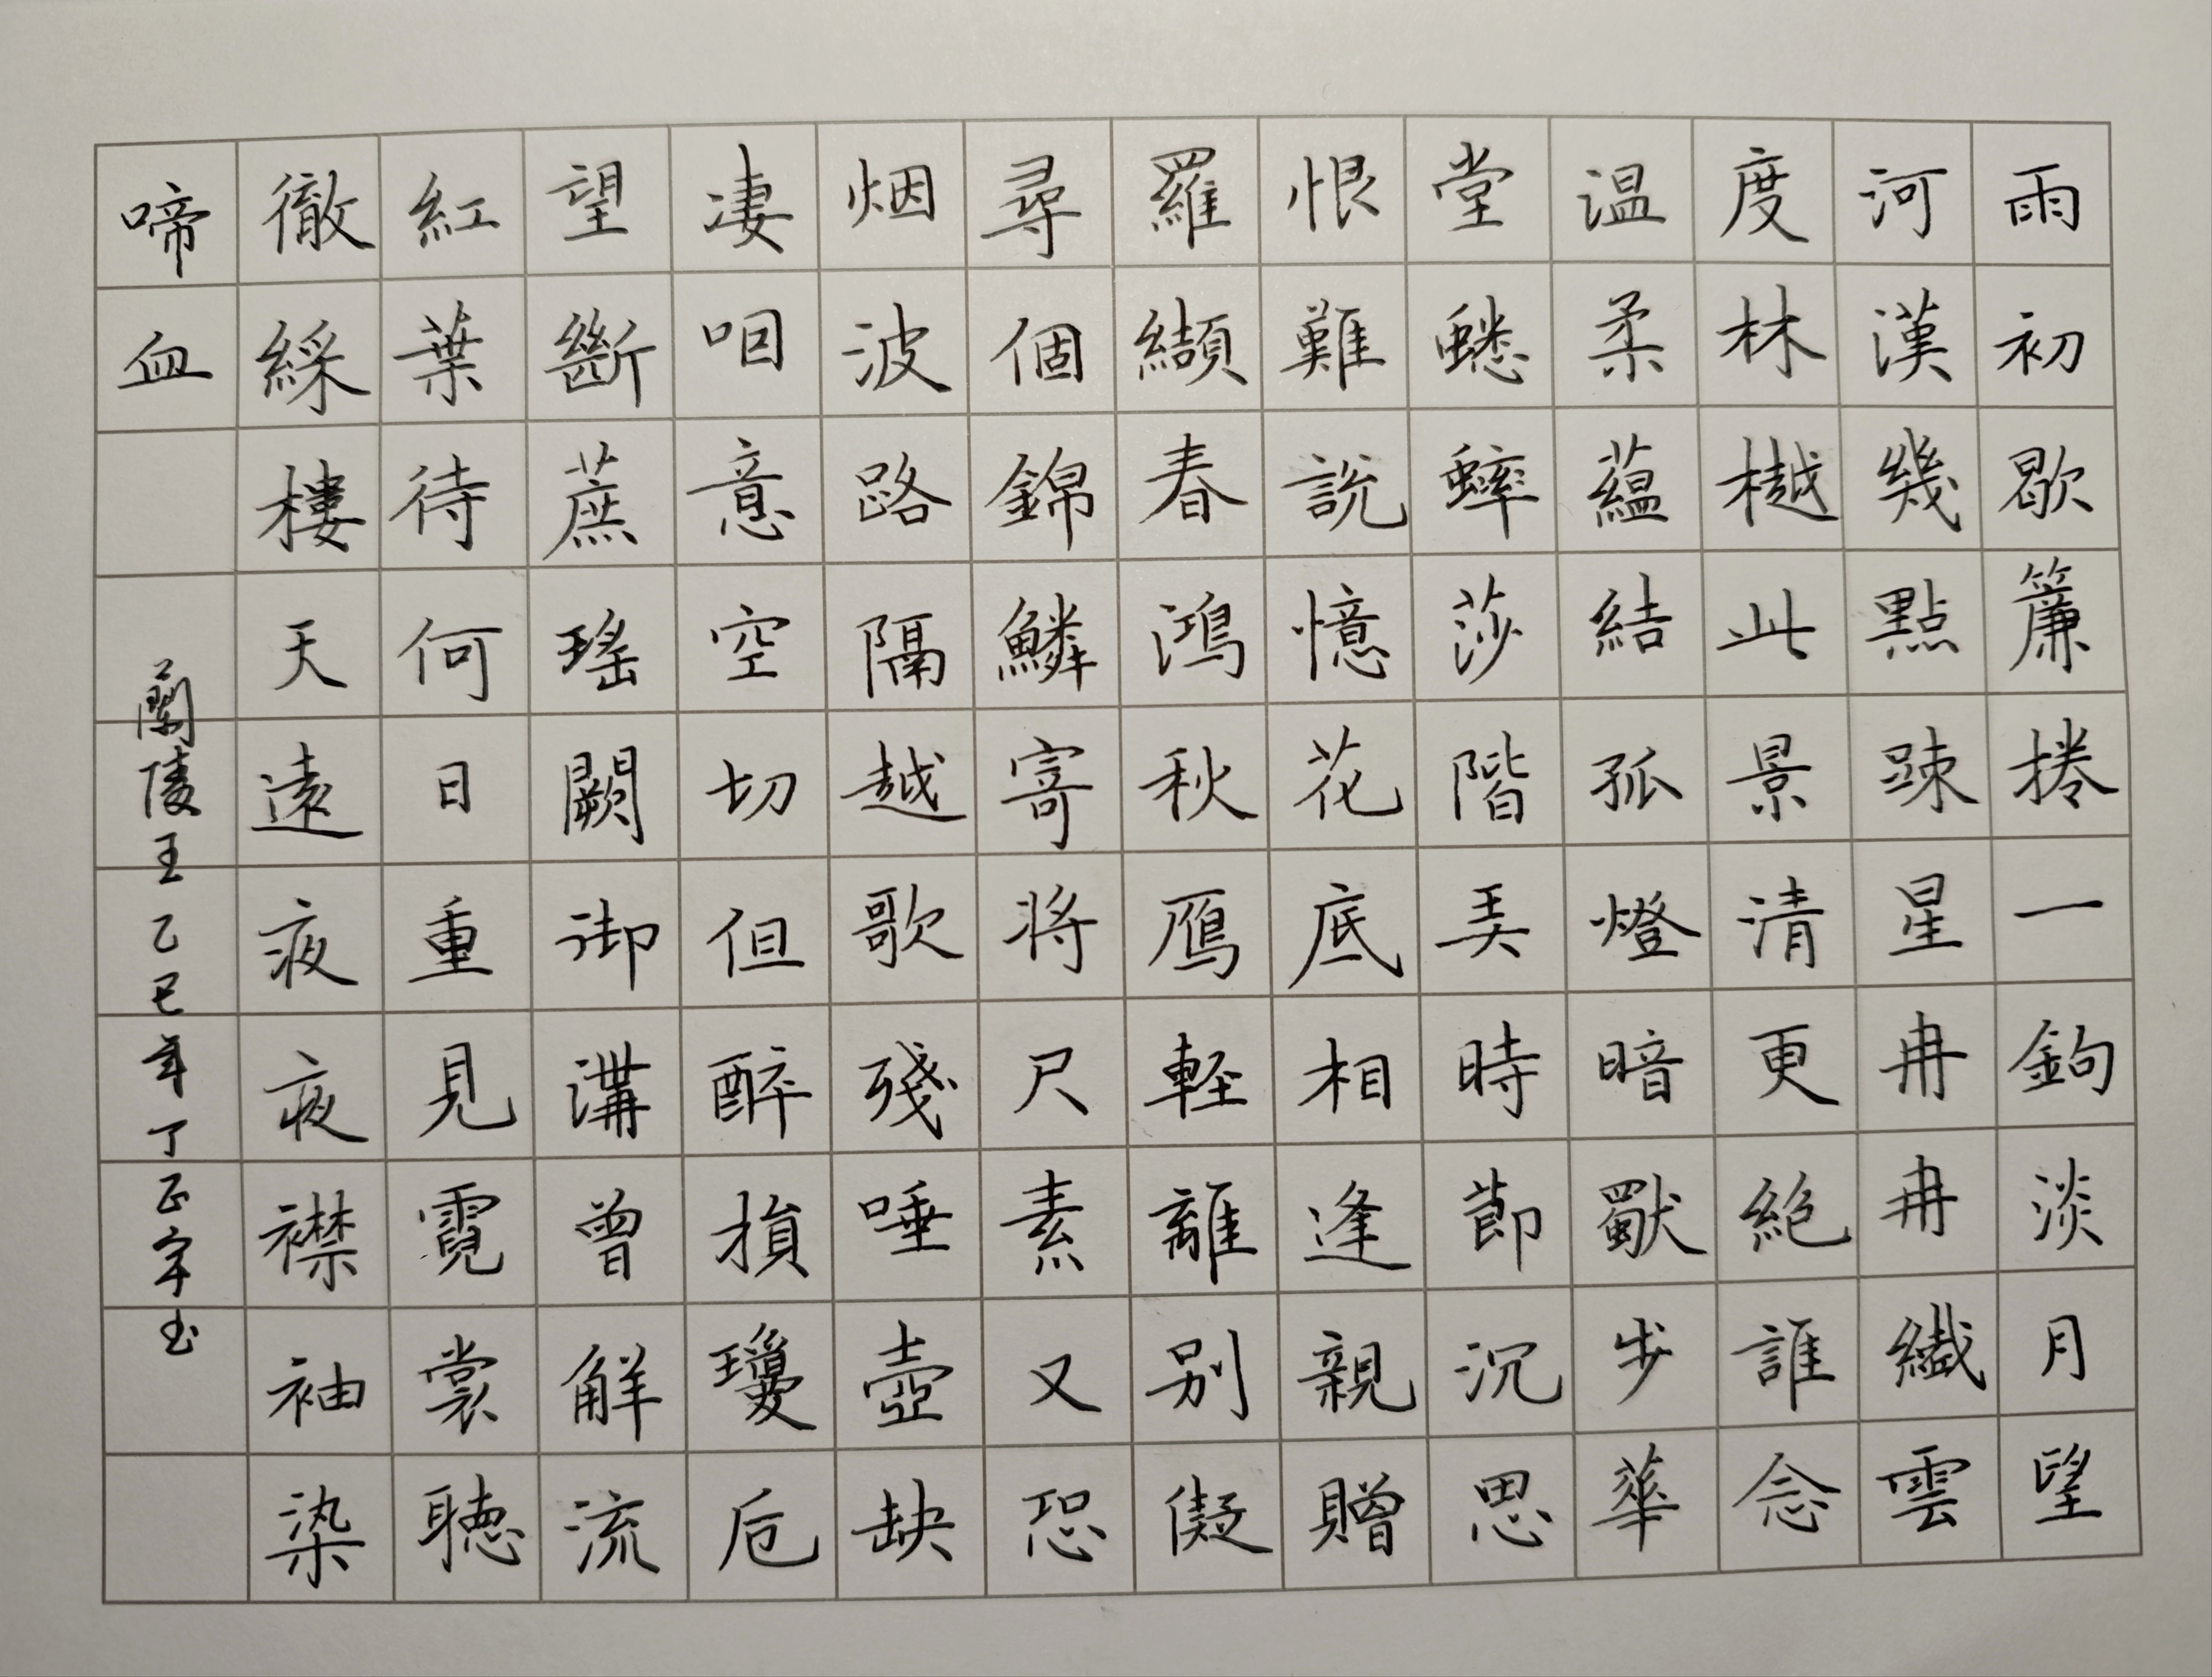 雨初歇簾捲一鉤淡月望
河漢幾點踈星冉冉纖雲
度林樾此景清更絶誰念
温柔蘊結孤燈暗獨步華
堂蟋蟀莎階弄時節沉思
恨難說憶花底相逢親贈
羅纈春鴻秋鴈軽離別儗
尋個錦鱗寄將尺素又恐
烟波路隔越歌殘唾壺缺
凄咽意空切但醉損瓊卮
望斷蔗瑤闕御溝曾解流
紅葉待何日重見霓裳聴
徹綵樓天遠夜夜襟袖染
啼血
蘭陵王乙巳年丁正宇书